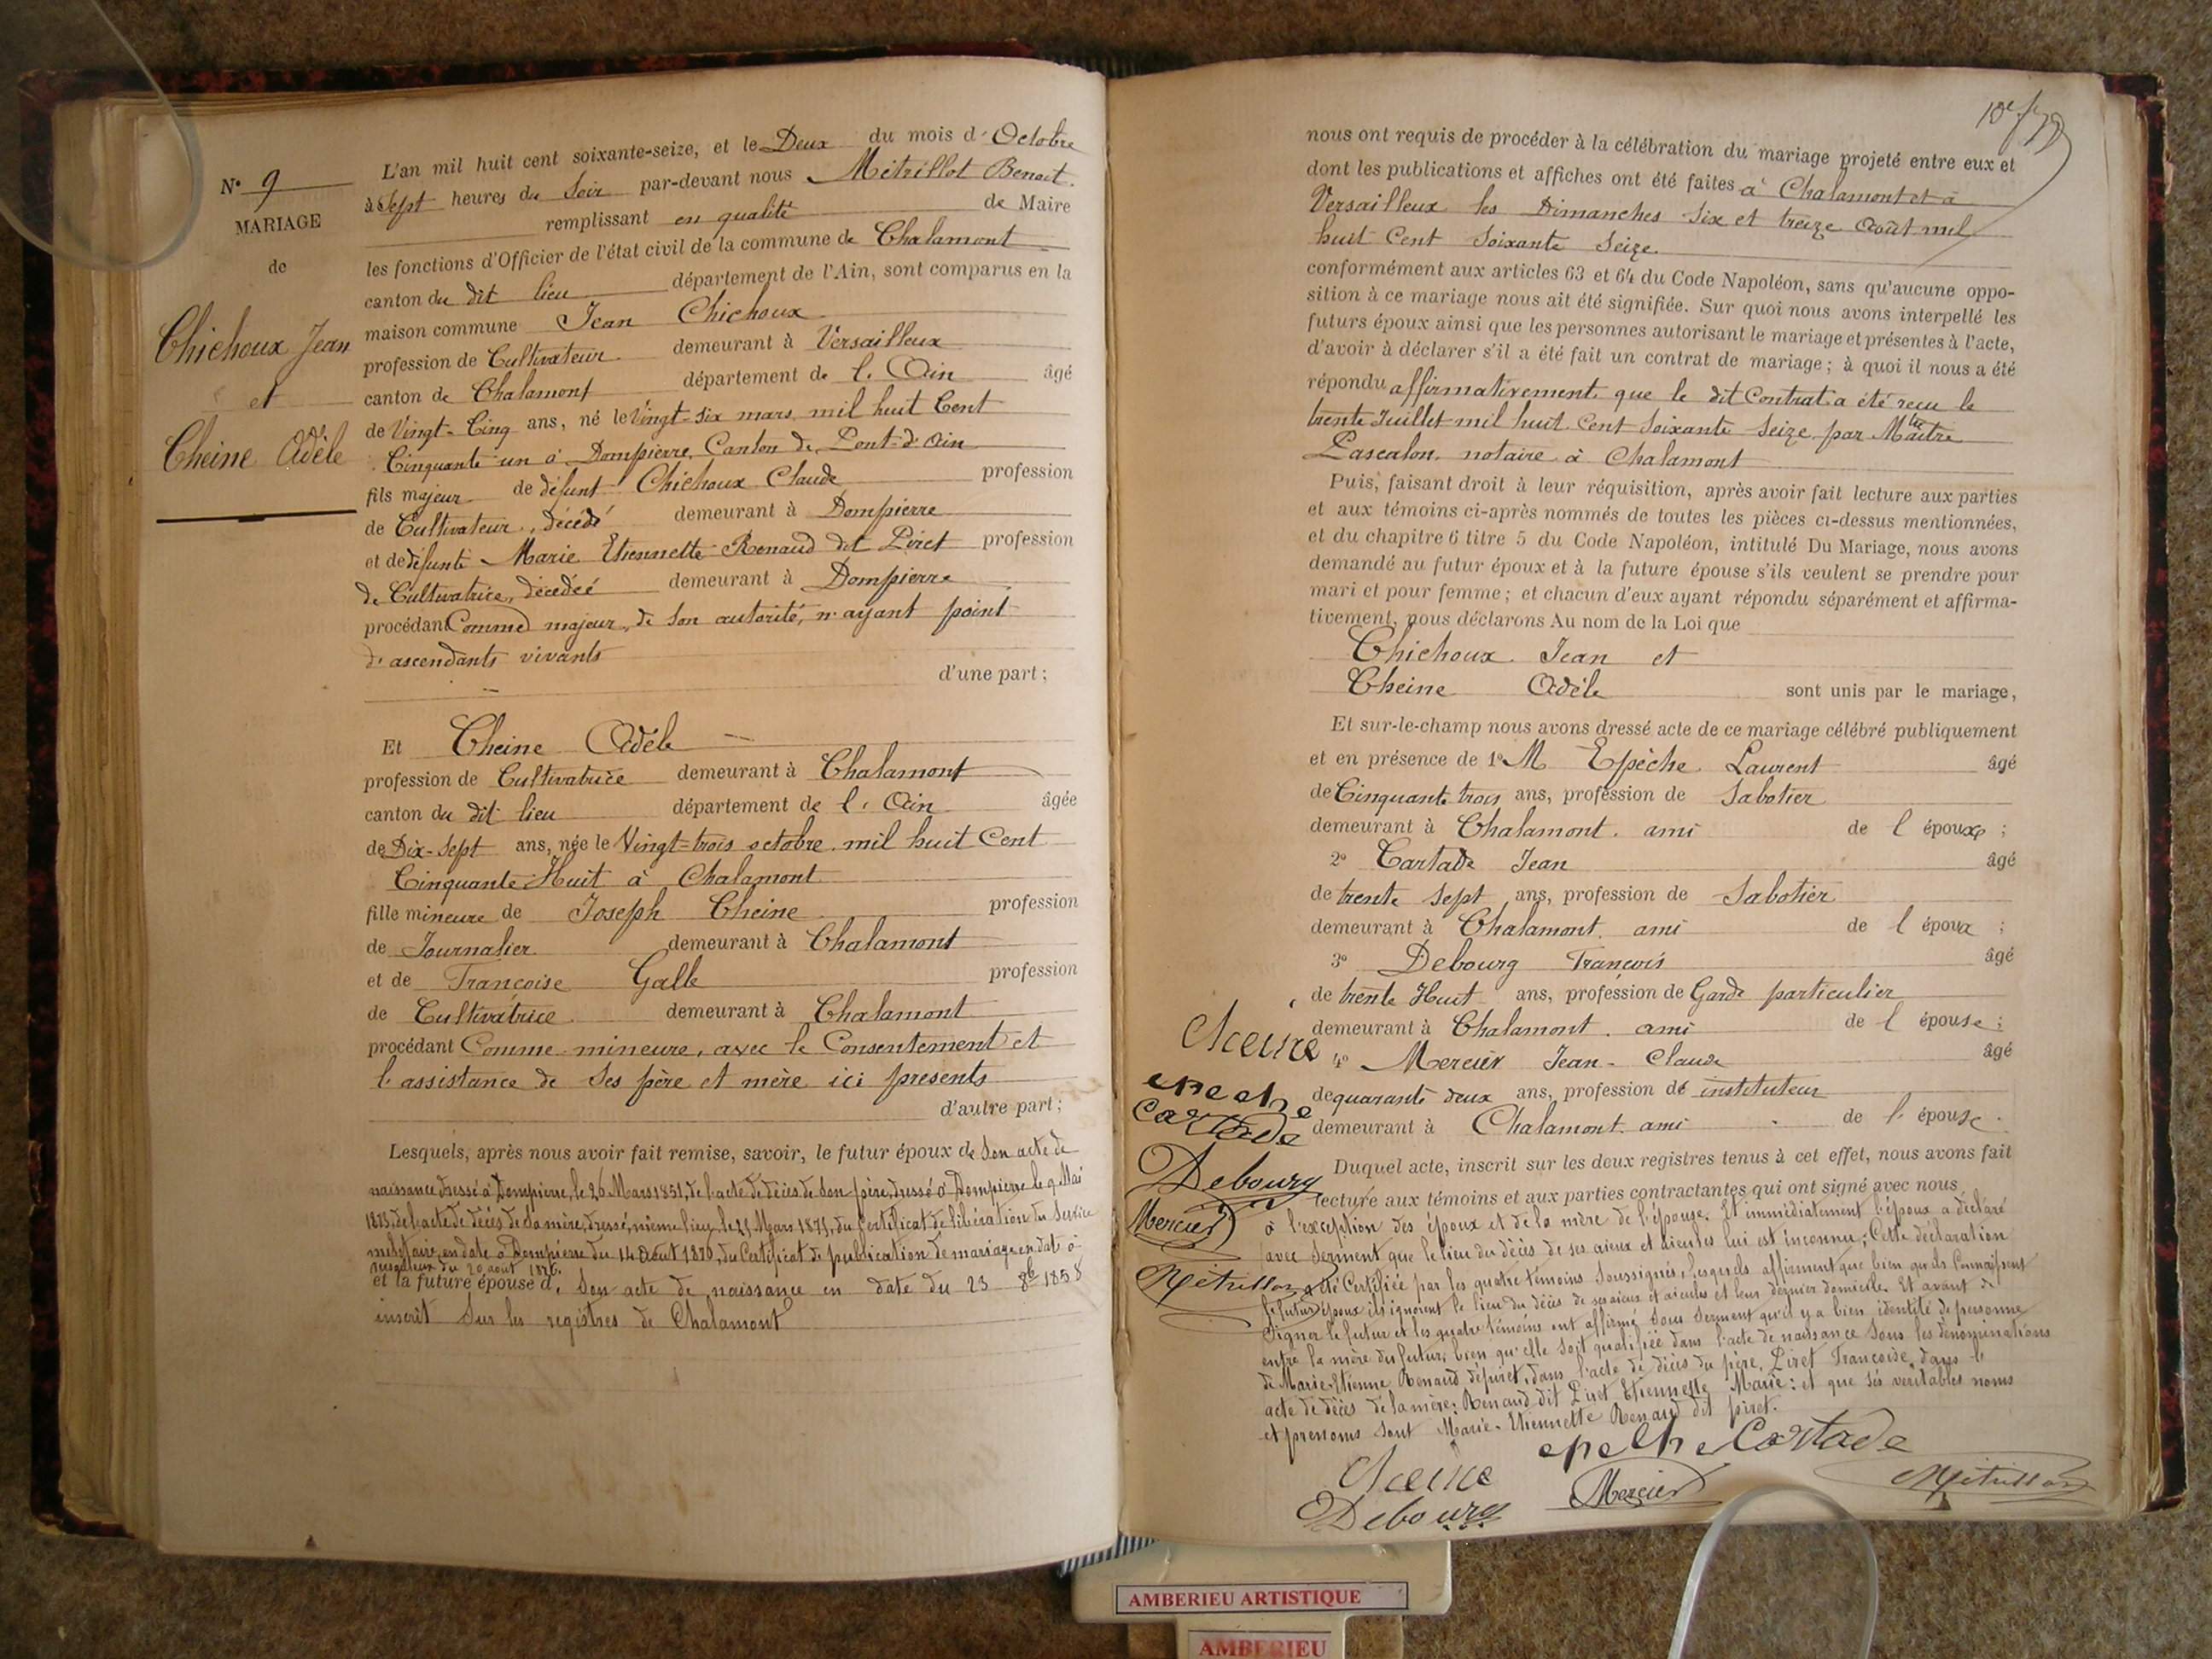 N° 9
MARIAGE
de
Chichoux Jean
et
Cheine Adèle
L'an mil huit cent soixante-seize, et le Deux du mois d'Octobre
à Sept heures du Soir par-devant nous Mitrillot Benoit
remplissant en qualité de Maire
les fonctions d'Officier de l'état civil de la commune de Chalamont
canton du dit lieu département de l'Ain, sont comparus en la
maison commune Jean Chichoux
profession de Cultivateur demeurant à Versailleux
canton de Chalamont département de l'Ain âgé
de Vingt-Cinq ans, né le Vingt-six mars mil huit Cent
Cinquante un à Dompierre, Canton de Pont-d'Ain
fils majeur de défunt Chichoux Claude profession
de Cultivateur, décédé demeurant à Dompierre
et de défunte Marie Etiennette Renaud dit Piret profession
de Cultivatrice, décédée demeurant à Dompierre
procédant Comme majeur, de son autorité, n'ayant point
d'ascendants vivants
d'une part;
Et Cheine Adèle
profession de Cultivatrice demeurant à Chalamont
canton du dit lieu département de l'Ain âgée
de Dix-Sept ans, née le Vingt-trois octobre mil huit Cent
Cinquante Huit à Chalamont
fille mineure de Joseph Cheine profession
de Journalier demeurant à Chalamont
et de Françoise Galle profession
de Cultivatrice demeurant à Chalamont
procédant Comme mineure, avec le Consentement et
l'assistance de Ses père et mère ici présents
d'autre part;
Lesquels, après nous avoir fait remise, savoir, le futur époux de Son acte de
naissance dressé à Dompierre, le 26 Mars 1851, de l'acte de décès de Son père, dressé à Dompierre le 9 Mai
1873, de l'acte de décès de sa mère, dressé, même lieu, le 21 Mars 1871, du Certificat de libération du Service
militaire, en date à Dompierre du 14 Août 1876, du Certificat de publication de mariage en date à
Versailleux du 20 août 1876.
et la future épouse d. Son acte de naissance en date du 23 8bre 1858
inscrit Sur les registres de Chalamont
nous ont requis de procéder à la célébration du mariage projeté entre eux et
dont les publications et affiches ont été faites à Chalamont et à
Versailleux les Dimanches Six et treize Août mil
huit Cent Soixante Seize.
conformément aux articles 63 et 64 du Code Napoléon, sans qu'aucune oppo-
sition à ce mariage nous ait été signifiée. Sur quoi nous avons interpellé les
futurs époux ainsi que les personnes autorisant le mariage et présentes à l'acte,
d'avoir à déclarer s'il a été fait un contrat de mariage; à quoi il nous a été
répondu affirmativement que le dit Contrat a été reçu le
trente Juillet mil huit Cent Soixante Seize par Maître
Pascalon, notaire à Chalamont
Puis, faisant droit à leur réquisition, après avoir fait lecture aux parties
et aux témoins ci-après nommés de toutes les pièces ci-dessus mentionnées,
et du chapitre 6 titre 5 du Code Napoléon, intitulé Du Mariage, nous avons
demandé au futur époux et à la future épouse s'ils veulent se prendre pour
mari et pour femme; et chacun d'eux ayant répondu séparément et affirma-
tivement, nous déclarons Au nom de la Loi que
Chichoux Jean et
Cheine Adèle sont unis par le mariage,
Et sur-le-champ nous avons dressé acte de ce mariage célébré publiquement
et en présence de 1° M Epèche Laurent âgé
de Cinquante trois ans, profession de Sabotier
demeurant à Chalamont. ami de l'époux;
2° Cartade Jean âgé
de trente Sept ans, profession de Sabotier
demeurant à Chalamont. ami de l'époux;
3° Debourg François âgé
de trente Huit ans, profession de Garde particulier
demeurant à Chalamont. ami de l'épouse;
4° Mercier Jean-Claude âgé
de quarante deux ans, profession de instituteur
demeurant à Chalamont. ami de l'épouse.
Duquel acte, inscrit sur les deux registres tenus à cet effet, nous avons fait
lecture aux témoins et aux parties contractantes qui ont signé avec nous
à l'exception des époux et de la mère de l'épouse. Et immédiatement l'époux a déclaré
avec Serment que le lieu du décès de ses aïeux et aïeules lui est inconnu; Cette déclaration
a été Certifiée par les quatre témoins Soussignés, lesquels affirment que bien qu'ils Connaissent
le futur époux ils ignorent le lieu du décès de ses aïeux et aïeules et leur dernier domicile. Et avant de
Signer le futur et les quatre témoins ont affirmé Sous Serment qu'il y a bien identité de personne
entre la mère du futur, bien qu'elle soit qualifiée dans l'acte de naissance Sous les dénominations
de Marie-Etienne Renaud dépiret, dans l'acte de décès du père, Piret Françoise, dans l'
acte de décès de la mère: Renaud dit Piret Etiennette Marie: et que ses véritables noms
et prénoms sont Marie-Etiennette Renaud dit piret.
Cheine
epeche
Cartade
Debourg
Mercier
Mitrillot
Cheine epelhe Cartade
Debourg Mercier Mitrillot
AMBERIEU ARTISTIQUE
AMBERIEU